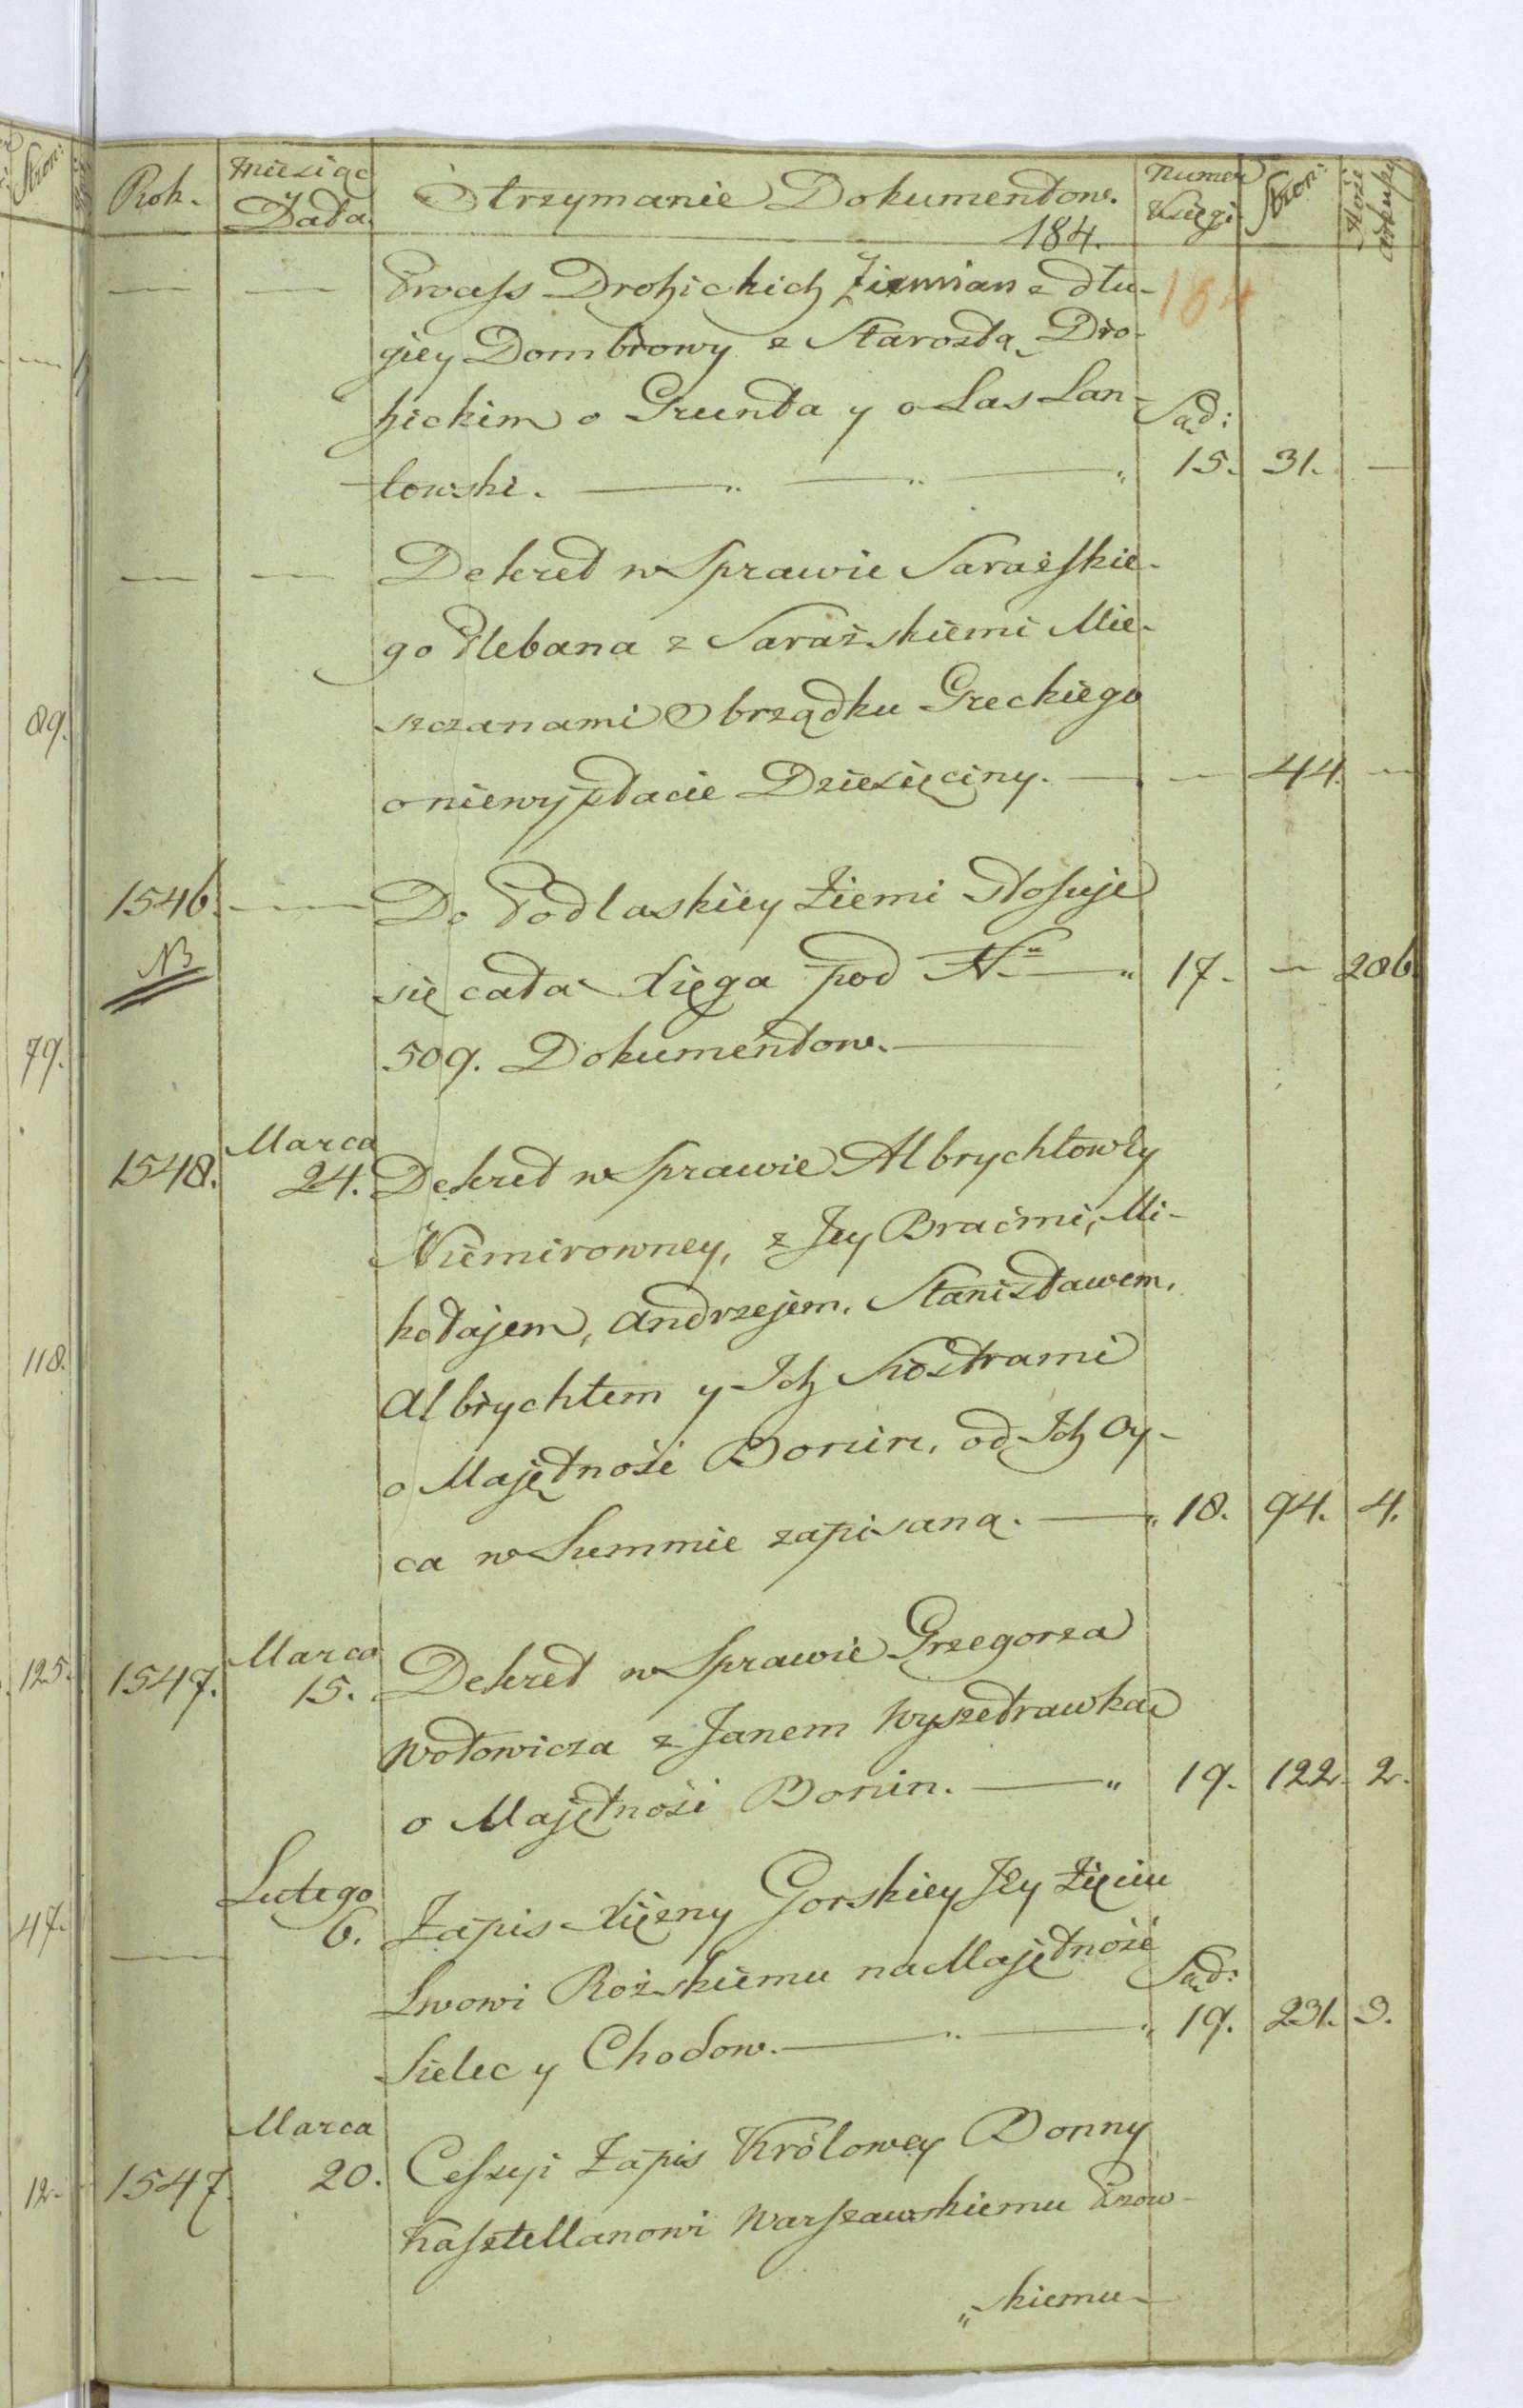 Rok.
Miesiąc
y
Data.
Otrzymanie Dokumentow.
184.
Numer
Księgi
Stron:
Ilość
arkuszy
184
— — Process Drohickich Ziemian z dłu-
giey Dombrowy z Starostą Dro-
hickim o Grunta y o Las Lan-
Sąd:
towski. — „ — „ — „ 15. 31. —
— — Dekret w Sprawie Sarażskie-
go Plebana z Sarażskiemi Mie-
szczanami Obrządku Greckiego
o niewypłacie Dziesięciny. — — 44. —
1546. — Do Podlaskiey Ziemi Stosuje
NB
się cała Xięga pod No — „ 17. — 206.
509. Dokumentow. —
Marca
1548. 24. Dekret w Sprawie Albrychtowey
Niemirowney, z Jey Braćmi, Mi-
kołajem, Andrzejem, Stanisławem,
Albrychtem y Ich Siostrami
o Majętność Bonin, od Ich Oy-
ca w Summie zapisaną. — „ 18. 94. 4.
Marca
1547. 15. Dekret w Sprawie Grzegorza
Wołowicza z Janem Wyszetrawka
o Majętność Bonin. — „ 19. 122. 2.
Lutego
— 6. Zapis Xiężny Gorskiey Jey Zięciu
Lwowi Rożskiemu na Majętność
Sąd:
Sielec y Chodow. — „ — „ 19. 231. 3.
Marca
1547. 20. Cessyi Zapis Królowey Bonny
Kasztellanowi Warszawskiemu
„kiemu
Stron:
89.
79.
118.
125.
47.
12.